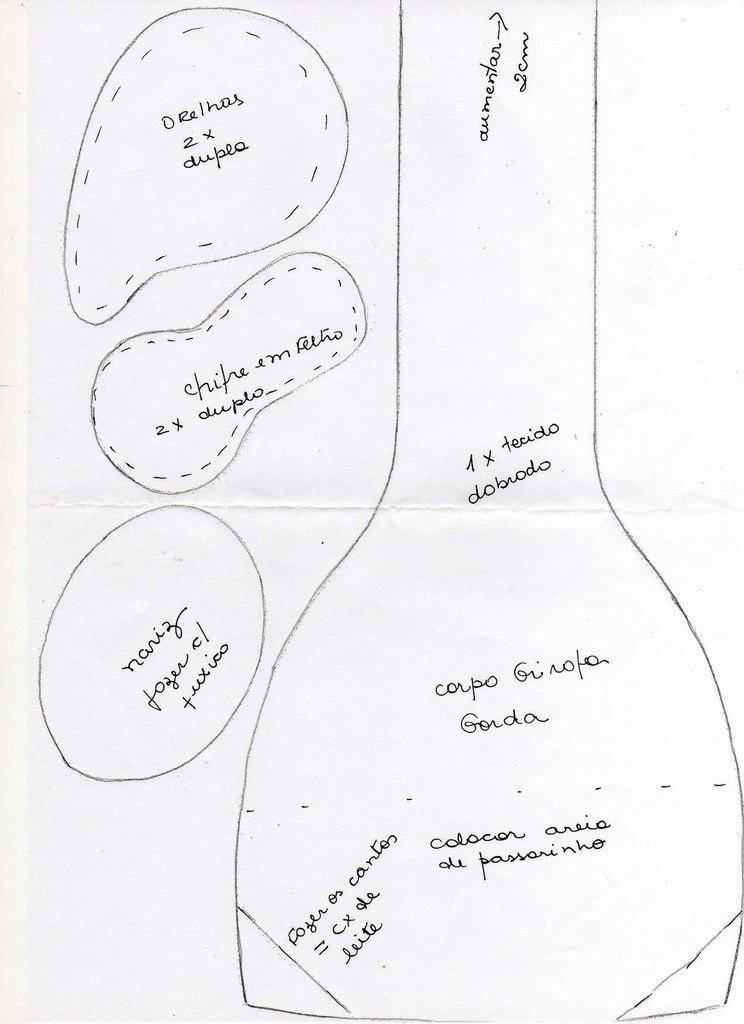 ORelhas
2 x
dupla
aumentar →
2cm
chifre em Feltro
2 x duplo
1 x tecido
dobrado
nariz
fazer c/
fuxico
corpo Girafa
Gorda
colocar areia
de passarinho
Fazer os cantos
= cx de
leite